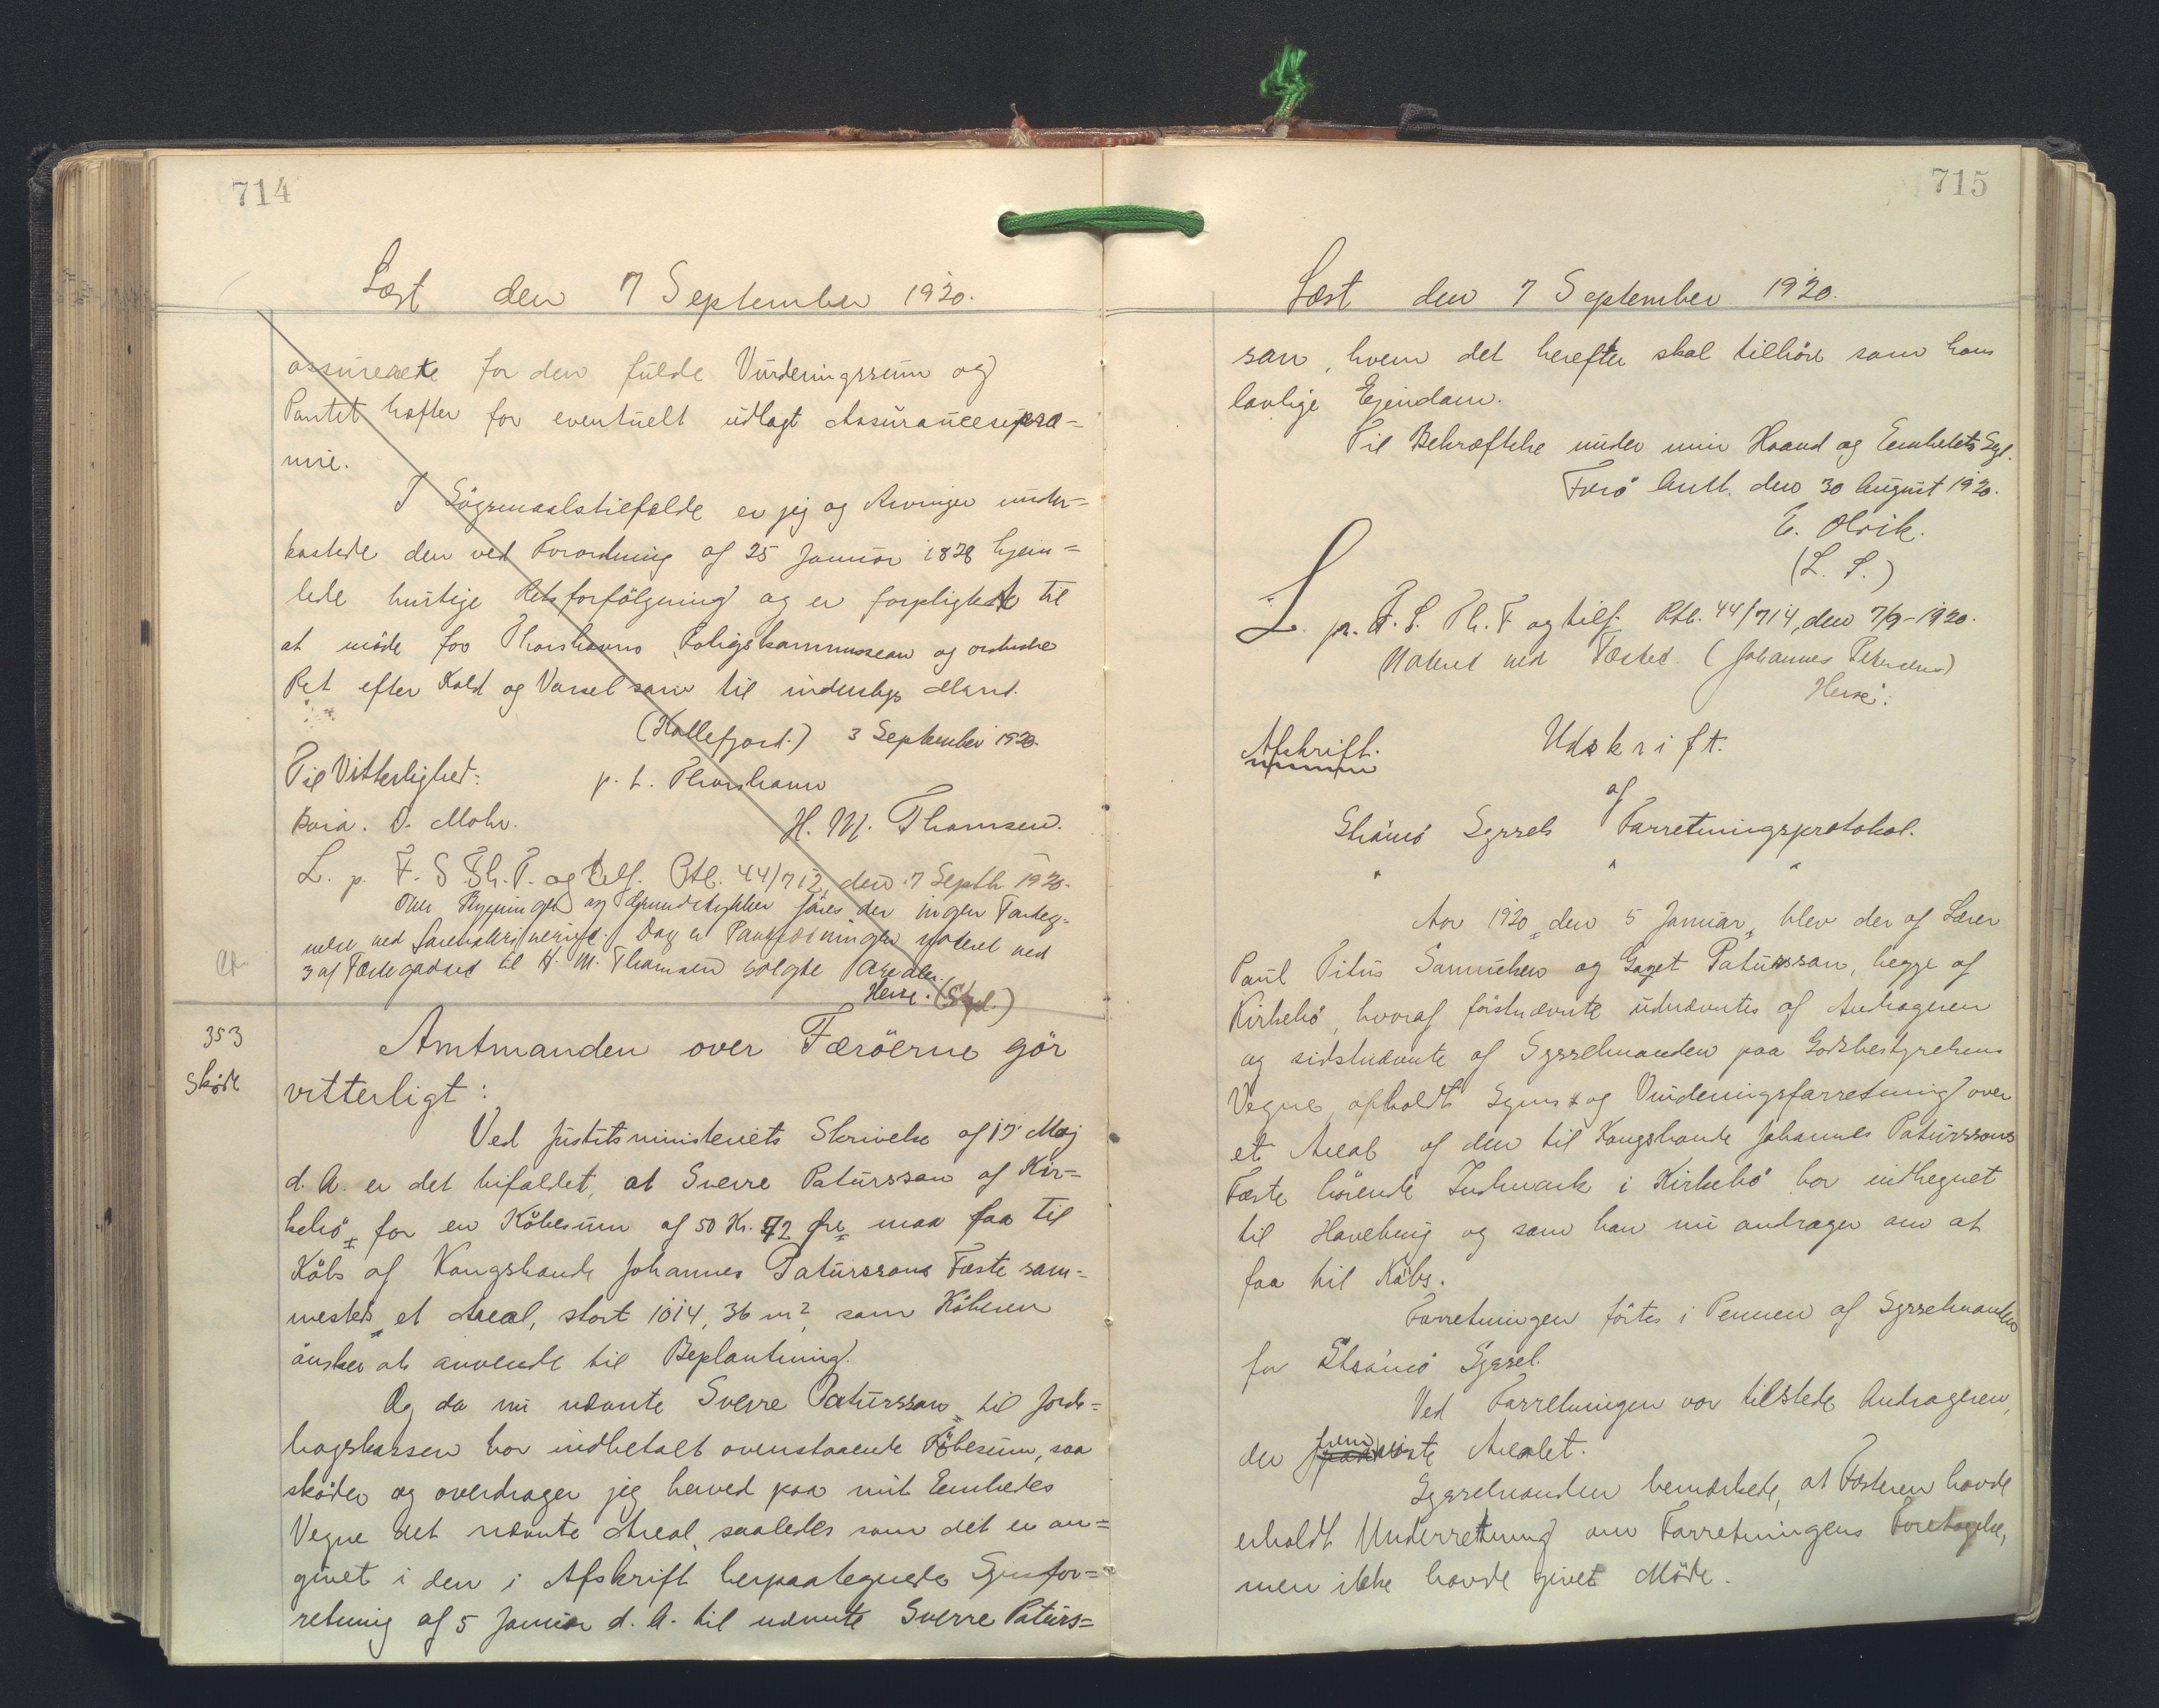 714
Læst den 7 September 1920.
assurerede for den fulde Vurderingssum og
Pantet hæfter for eventuelt udlagt Assurancepræ=
mie.
I Sögsmaalstilfælde er jeg og Arvinger under=
kastede den ved Forordning af 25 Januar 1828 hjem=
lede hurtige Retsforfölgning og er forpligtede til
at möde for Thorshavns Forligskommission og ordinære
Ret efter Kald og Varsel som til indenbys Mand.
(Kollefjord.) 3 September 1920.
Til Vitterlighed: p. t. Thorshavn
D. Mohr. H. M. Thomsen.
L. p. F. S. Th. T. og Telf. Ptb. 44/712, den 7 Septb. 1920.
Over Bygninger og Grundstykker föres der ingen Forteg=
nelse ved Dog er Pantsætningen noteret ved
3 af Fæstegodset til H. M. Thomsen solgte Parceller.
353
Sköde
Amtmanden over Færöerne gör
vitterligt:
Ved Justitsministeriets Skrivelse af 15 Maj
d. A. er det bifaldet, at Sverre Patursson af Kir=
kebö, for en Köbesum af 50 Kr. 72 Öre, maa faa til
Köbs af Kongsbonde Johannes Paturssons Fæste sam=
mesteds et Areal, stort 1014,36 m², som Köberen
önsker at anvende til Beplantning.
Og da nu nævnte Sverre Patursson til Jorde=
bogskassen har indbetalt ovenstaaende Köbesum, saa
sköder og overdrager jeg herved paa mit Embedes
Vegne det nævnte Areal, saaledes som det er an=
givet i den i Afskrift herpaategnede Synsfor=
retning af 5 Januar d. A. til nævnte Sverre Paturs=
715
Læst den 7 September 1920.
son, hvem det herefter skal tilhöre som hans
lovlige Ejendom.
Til Bekræftelse under min Haand og Embedets Segl.
Færö Amt. den 30 August 1920.
E. Olrik.
(L. S.)
L. p. F. S. Th. T. og tilf. Ptb. 44/714, den 7/9-1920.
Noteret ved Fæstet. (Johannes Paturssons)
Afskrift. Udskrift.
af
Strömö Syssels Forretningsprotokol.
Aar 1920, den 5 Januar, blev der af Lærer
Paul Pitus Samuelsen og Gazet Patursson, begge af
Kirkebö, hvoraf förstnævnte udnævntes af Andrageren
og sidstnævnte af Sysselmanden paa Godsbestyrelsens
Vegne, afholdt Syns og Vurderingsforretning over
et Areal af den til Kongsbonde Johannes Paturssons
Fæste hörende Indmark i Kirkebö har indhegnet
til Havebrug og som han nu andrager om at
faa til Köbs.
Forretningen förtes i Pennen af Sysselmanden
for Strömö Syssel.
Ved Forretningen var tilstede Andrageren,
der fremviste Arealet.
Sysselmanden bemærkede, at Fæsteren havde
erholdt Underretning om Forretningens Foretagelse,
men ikke havde givet Möde.